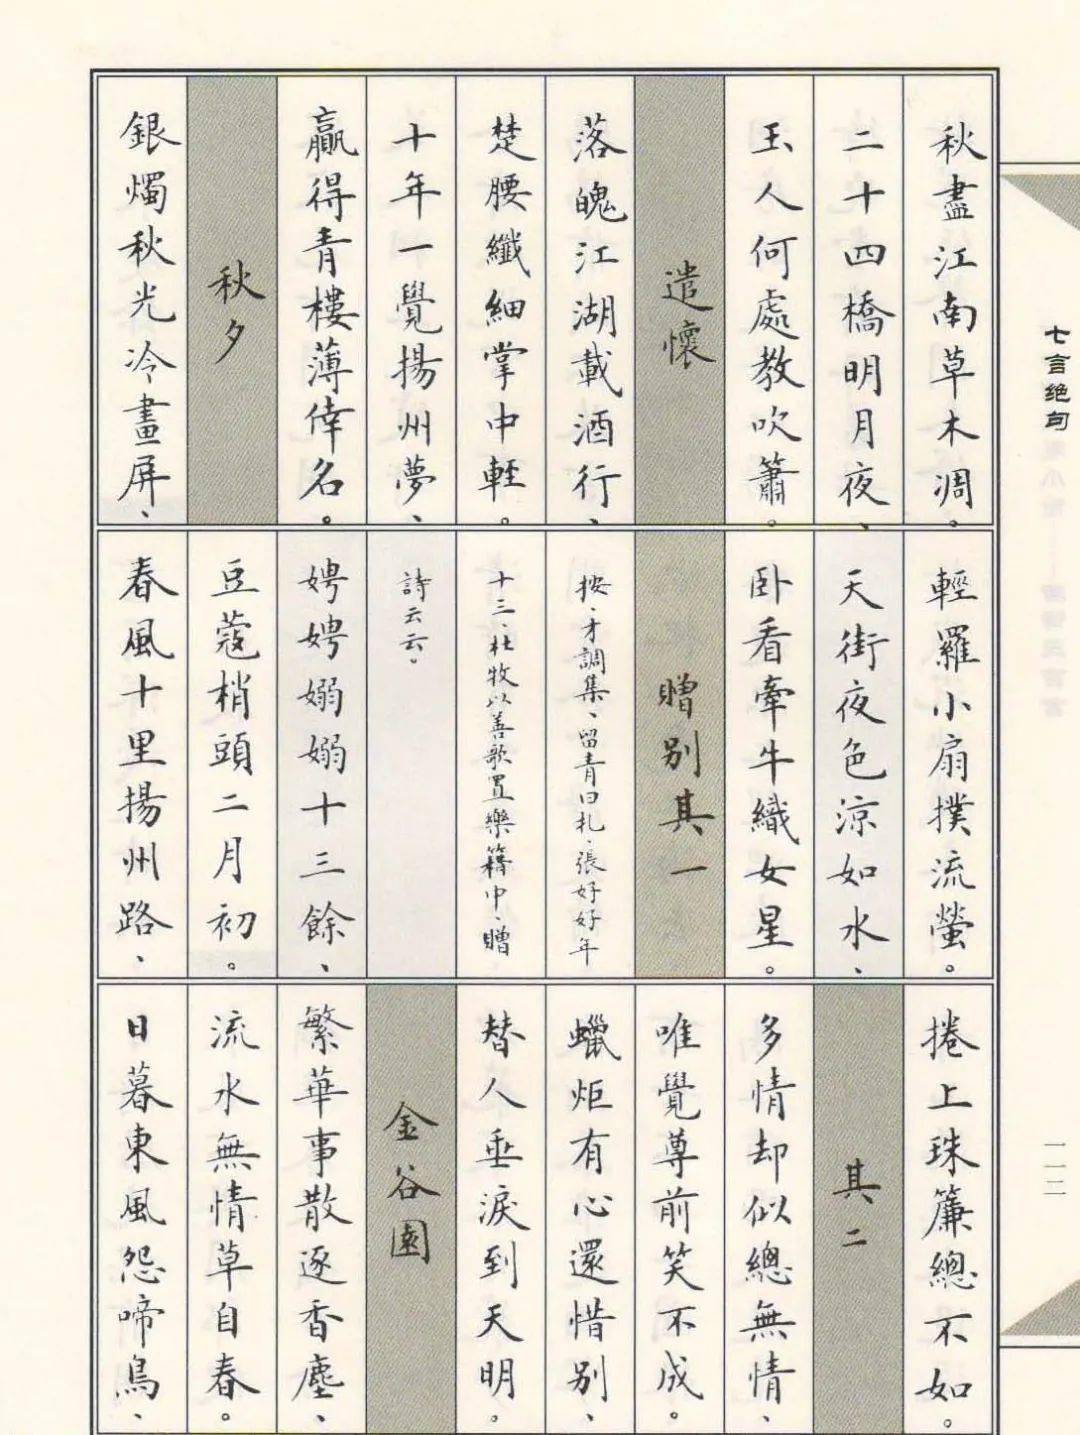 秋盡江南草木凋。
二十四橋明月夜、
玉人何處教吹簫。
遣懷
落魄江湖載酒行、
楚腰纖細掌中輕。
十年一覺揚州夢、
贏得青樓薄倖名。
秋夕
銀燭秋光冷畫屏、
輕羅小扇撲流螢。
天街夜色涼如水、
卧看牽牛織女星。
贈別其一
按、才調集、留青日札、張好好年
十三、杜牧以善歌置樂籍中、贈
詩云云。
娉娉嫋嫋十三餘、
豆蔻梢頭二月初。
春風十里揚州路、
捲上珠簾總不如。
其二
多情却似總無情、
唯覺尊前笑不成。
蠟炬有心還惜別、
替人垂淚到天明。
金谷園
繁華事散逐香塵、
流水無情草自春。
日暮東風怨啼鳥、
七言绝句
一一二